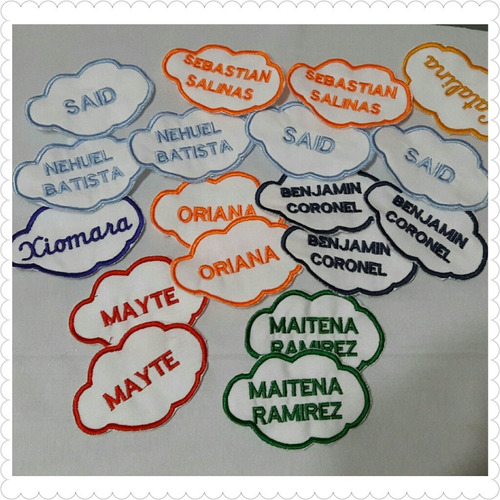 SEBASTIAN
SALINAS
SEBASTIAN
SALINAS
Catalina
SAID
NEHUEL
BATISTA
NEHUEL
BATISTA
SAID
SAID
Xiomara
ORIANA
ORIANA
BENJAMIN
CORONEL
BENJAMIN
CORONEL
BENJAMIN
CORONEL
MAYTE
MAYTE
MAITENA
RAMIREZ
MAITENA
RAMIREZ